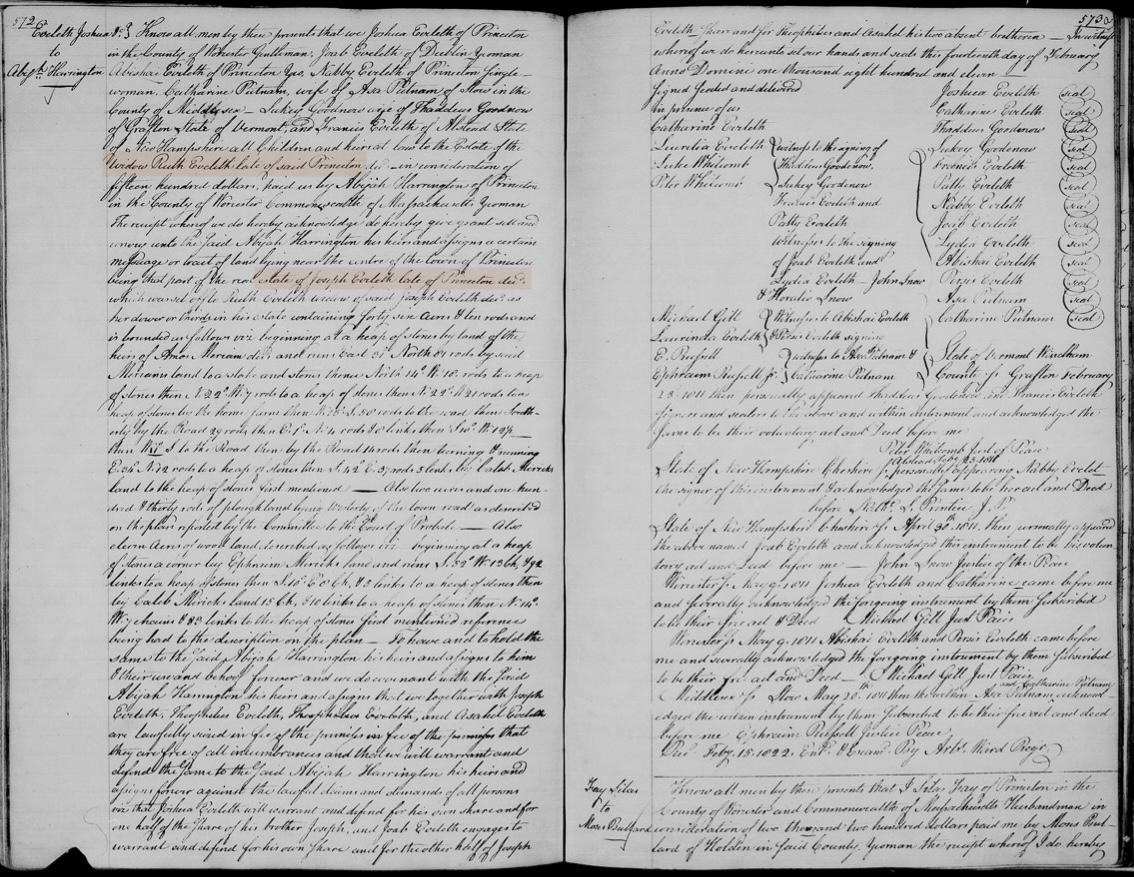 572
Eveleth Joshua &c.
to
Abijh. Harrington
Know all men by these presents that we Joshua Eveleth of Princeton
in the County of Worcester Gentleman, Joab Eveleth of Dublin Yeoman
Abishai Eveleth of Princeton Yeo, Nabby Eveleth of Princeton Single-
woman, Catharine Putnam, wife of Asa Putnam of Stow in the
County of Middlesex - Sukey Goodnow wife of Thaddeus Goodnow
of Grafton State of Vermont, and Francis Eveleth of Alstead State
of New Hampshire all Children and heirs at law to the Estate of the
Widow Ruth Eveleth late of said Princeton decd. in consideration of
fifteen hundred dollars, paid us by Abijah Harrington of Princeton
in the County of Worcester Commonwealth of Massachusetts Yeoman
The receipt whereof we do hereby acknowledge do hereby give grant sell and
convey unto the said Abijah Harrington his heirs and assigns a certain
messuage or tract of land lying near the center of the town of Princeton
being that part of the real estate of Joseph Eveleth late of Princeton decd.
which was set off to Ruth Eveleth widow of said Joseph Eveleth decd. as
her dower or thirds in his estate containing forty six Acres & ten rods and
is bounded as follows viz beginning at a heap of stones by land of the
heirs of Amos Meriam decd. and runs East 31° North 81 rods by said
Meriams land to a stake and stones thence North 14° W. 18 rods to a heap
of stones then N 22° W. 7 rods to a heap of stones then N. 22° W 21 rods to a
heap of stones by the home farm then W. S. 50 rods to the road then South-
erly by the Road 29 rods then E. rods & links then W. 12
then W. S to the Road then by the Road 14 rods then turning & running
E. N 12 rods to a heap of stones then S. 42° E. 37 rods 5 links by Caleb Mericks
land to the heap of stones first mentioned — Also two acres and one hun-
dred & thirty rods of plough land lying westerly of the town road as described
on the plan reported by the Committee to the Court of Probate — Also
eleven Acres of wood land described as follows viz beginning at a heap
of stones a corner by Ephraim Mericks land and runs S. 32° W. 13 Ch, & 92
links to a heap of stones then S. 10° E. 8 Ch, & 3 links to a heap of stones then
by Caleb Merick land 15 Ch, & 10 links to a heap of stones then N. 14°
W. 7 chains & 83 links to the heap of stones first mentioned reference
being had to the description on the plan — To have and to hold the
same to the said Abijah Harrington his heirs and assigns to him
& their use and behoof forever and we do covenant with the said
Abijah Harrington his heirs and assigns that we together with Joseph
Eveleth, Theophilus Eveleth, Theophilus Eveleth, and Asahel Eveleth
are lawfully seized in fee of the premises in fee of the premises that
they are free of all incumbrances and that we will warrant and
defend the same to the said Abijah Harrington his heirs and
assigns forever against the lawful claims and demands of all persons
viz that Joshua Eveleth will warrant and defend for his own share and for
one half of the share of his brother Joseph, and Joab Eveleth engages to
warrant and defend for his own share and for the other half of Joseph
573
Eveleth share and for Theophilus and Asahel his two absent brethren — In witness
whereof we do hereunto set our hands and seals this fourteenth day of February
Anno Domini one thousand eight hundred and eleven —
Signed Sealed and delivered
in presence of us
Catharine Eveleth
Lucretia Eveleth
Luke Whitcomb
Peter Whitcomb
witness to the signing of
Thaddeus Goodenow,
Sukey Goodenow
Francis Eveleth and
Patty Eveleth
Witnesses to the signing
of Joab Eveleth and
Lydia Eveleth - John Snow
& Horatio Snow
Michael Gill
Laurinda Eveleth
Witnesses to Abishai Eveleth
& Persis Eveleth signing
E. Russell
Ephraim Russell Jr.
witness to Asa Putnam &
Catharine Putnam
Joshua Eveleth seal
Catharine Eveleth seal
Thaddeus Goodenow seal
Sukey Goodenow seal
Francis Eveleth seal
Patty Eveleth seal
Nabby Eveleth seal
Joab Eveleth seal
Lydia Eveleth seal
Abishai Eveleth seal
Persis Eveleth seal
Asa Putnam seal
Catharine Putnam seal
State of Vermont Windham
County ss Grafton February
23 1811 then personally appeared Thaddeus Goodenow and Francis Eveleth
signers and sealers to the above and within instrument and acknowledged the
same to be their voluntary act and Deed before me
Peter Whitcomb Just of Peace
State of New Hampshire Cheshire ss Alstead Feby. 23. 1811 personally appearing Nabby Evelet
the signer of this instrument & acknowledged the same to be her act and Deed
before Nathl. S. Prentice J. P.
State of New Hampshire Cheshire ss April 30 1811 then personally appeared
the above named Joab Eveleth and acknowledged this instrument to be his volun-
tary act and Deed before me — John Snow Justice of the Peace
Worcester ss May 9. 1811 Joshua Eveleth and Catharine came before me
and severally acknowledged the foregoing instrument by them subscribed
to be their free act & Deed Michael Gill Just Pacis
Worcester ss May 9. 1811 Abishai Eveleth and Persis Eveleth came before
me and severally acknowledged the foregoing instrument by them subscribed
to be their free act and Deed — Michael Gill Just Pacis
Middlesex ss Stow May 20th 1811 then the within Asa Putnam and Catharine Putnam acknowl-
edged the within instrument by them subscribed to be their free act and deed
before me Ephraim Russell Justice Peace
Rec. Feby. 15. 1822. Entd. & Examd. By Artes. Ward Regr.
Fay Silas
to
Moses Bullard
Know all men by these presents that I Silas Fay of Princeton in the
County of Worcester and Commonwealth of Massachusetts Husbandman in
consideration of two thousand two hundred dollars paid me by Moses Bul-
lard of Holden in said County Yeoman the receipt whereof I do hereby